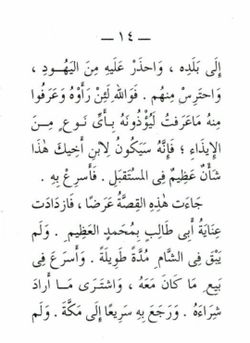 — ١٤ —
إِلَى بَلَدِه ، وَاحذَرْ عَلَيهِ مِنَ اليَهُودِ ،
وَاحتَرِسْ مِنهُم . فَوَاللهِ لَئِنْ رَأَوْهُ وَعَرَفُوا
مِنهُ مَاعَرَفتُ لَيُؤْذُونَهُ بِأَىِّ نَوعٍ مِـنَ
الإِيذَاءِ ؛ فَإِنَّهُ سَيَكُونُ لِابنِ أَخِيكَ هٰذَا
شَأنٌ عَظِيمٌ فِى المُستَقبَلِ . فَأَسرِعْ بِهِ .
جَاءَت هٰذِهِ القِصَّةُ عَرَضًا ، فَازدَادَت
عِنَايَةُ أَبِى طَالِبٍ بِمُحَمدٍ العَظِيمِ . وَلَم
يَبْقَ فِى الشَّامِ مُدَّةً طَوِيلَةً . وَأَسرَعَ فِى
بَيعِ مَا كَانَ مَعَهُ ، وَاشتَرَى مَـا أَرادَ
شِرَاءَهُ . وَرَجَعَ بِهِ سَرِيعًا إِلَى مَكَّةَ . وَلَم